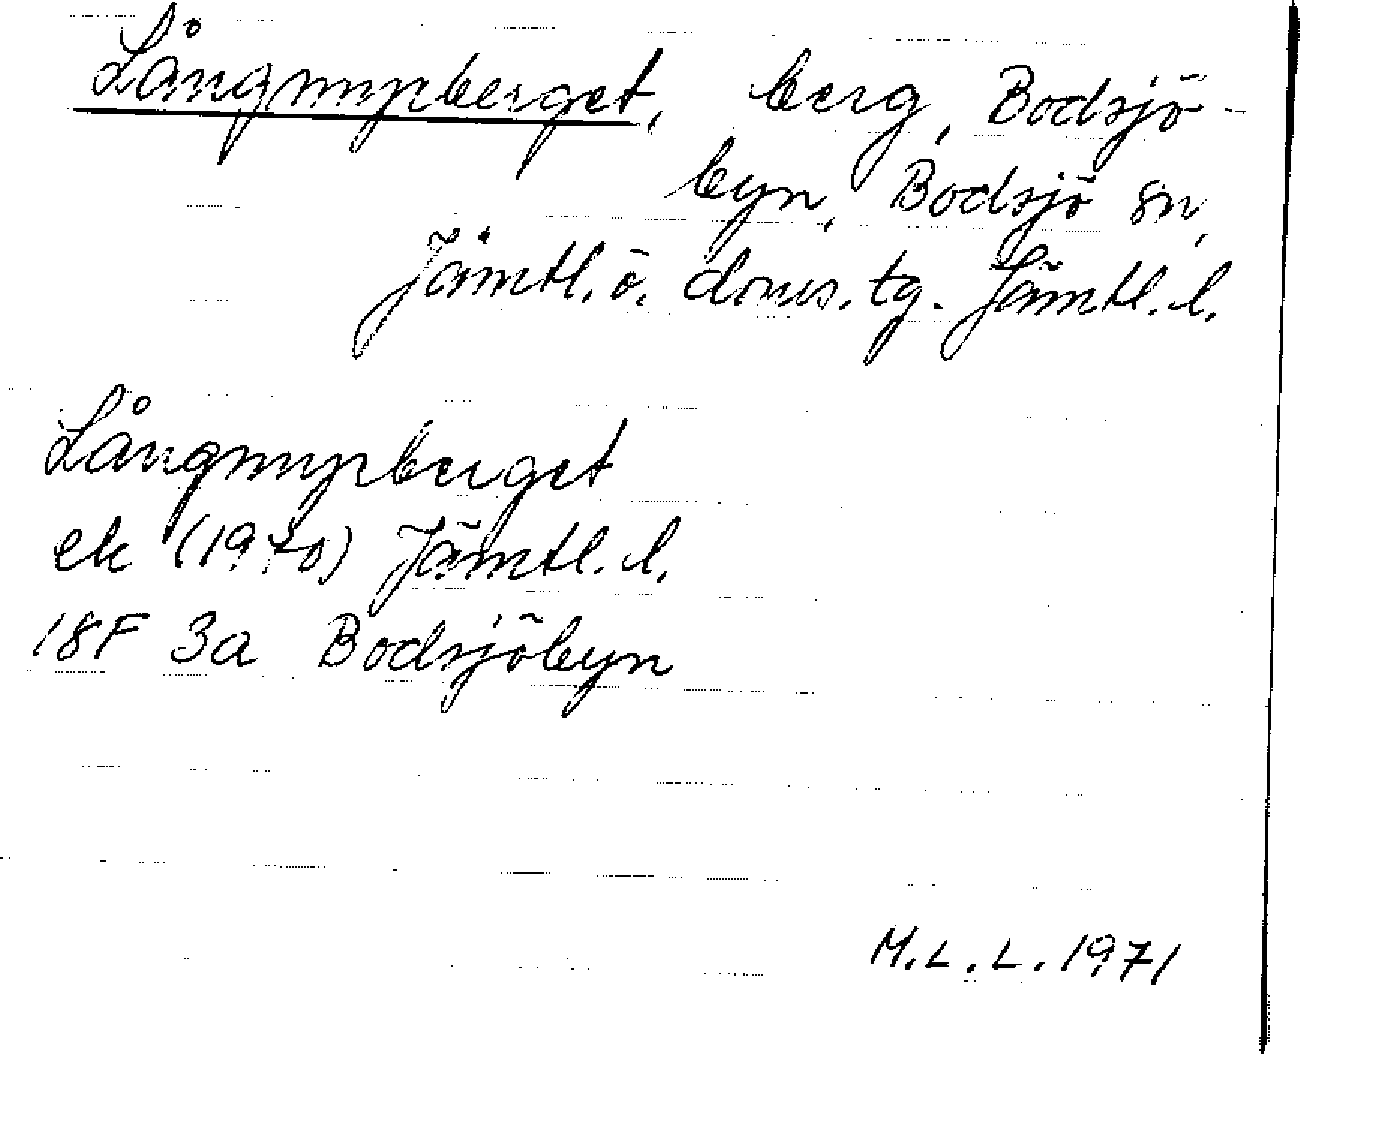 Långmyrberget, berg, Bodsjö-
byn, Bodsjö sn,
Jämtl. ö. doms. tg. Jämtl. l.
Långmyrberget
ek (1970) Jämtl. l.
18F 3a Bodsjöbyn
M.L.L. 1971